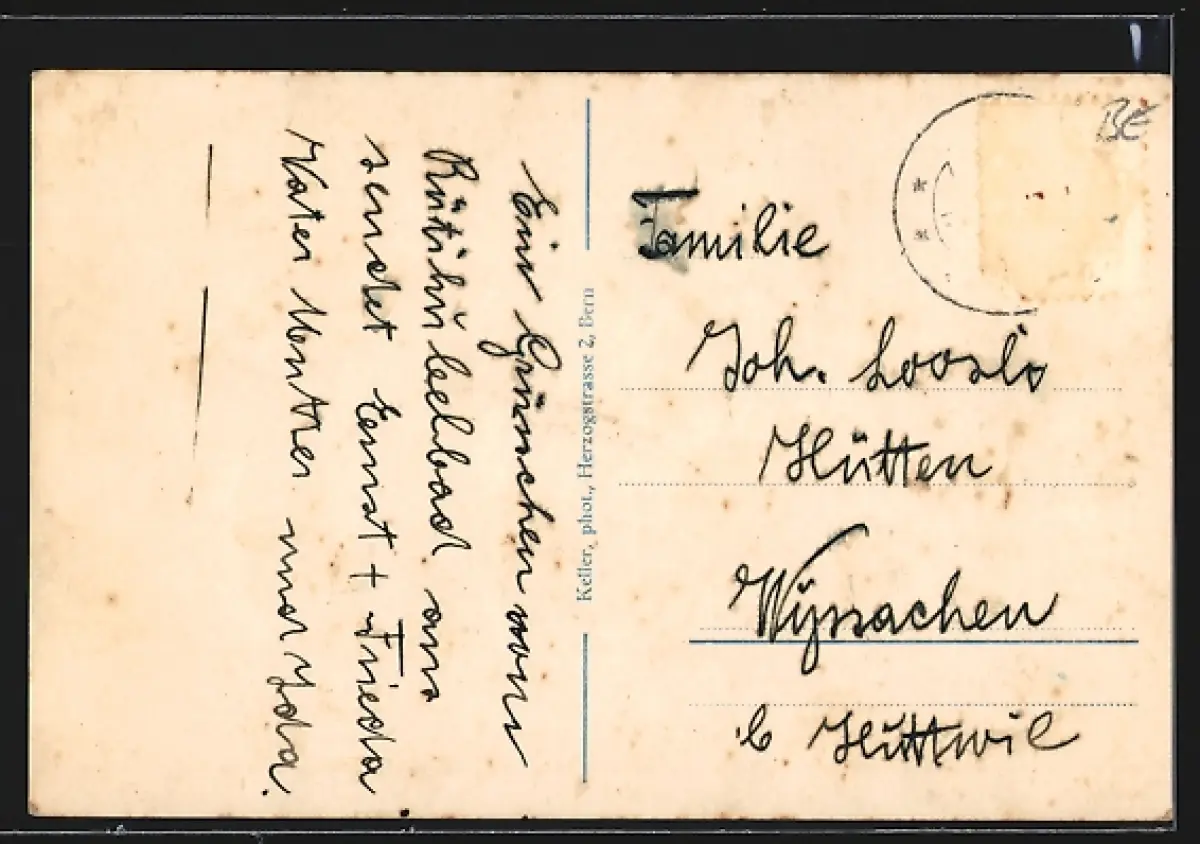 Ein Grüsschen vom
Rütihubelbad aus
sendet Ernst + Frieda
Vater Mutter und Ida.
Keller, phot., Herzogstrasse 2, Bern
BE
Familie
Joh. Loosli
Hütten
Wyssachen
b Huttwil